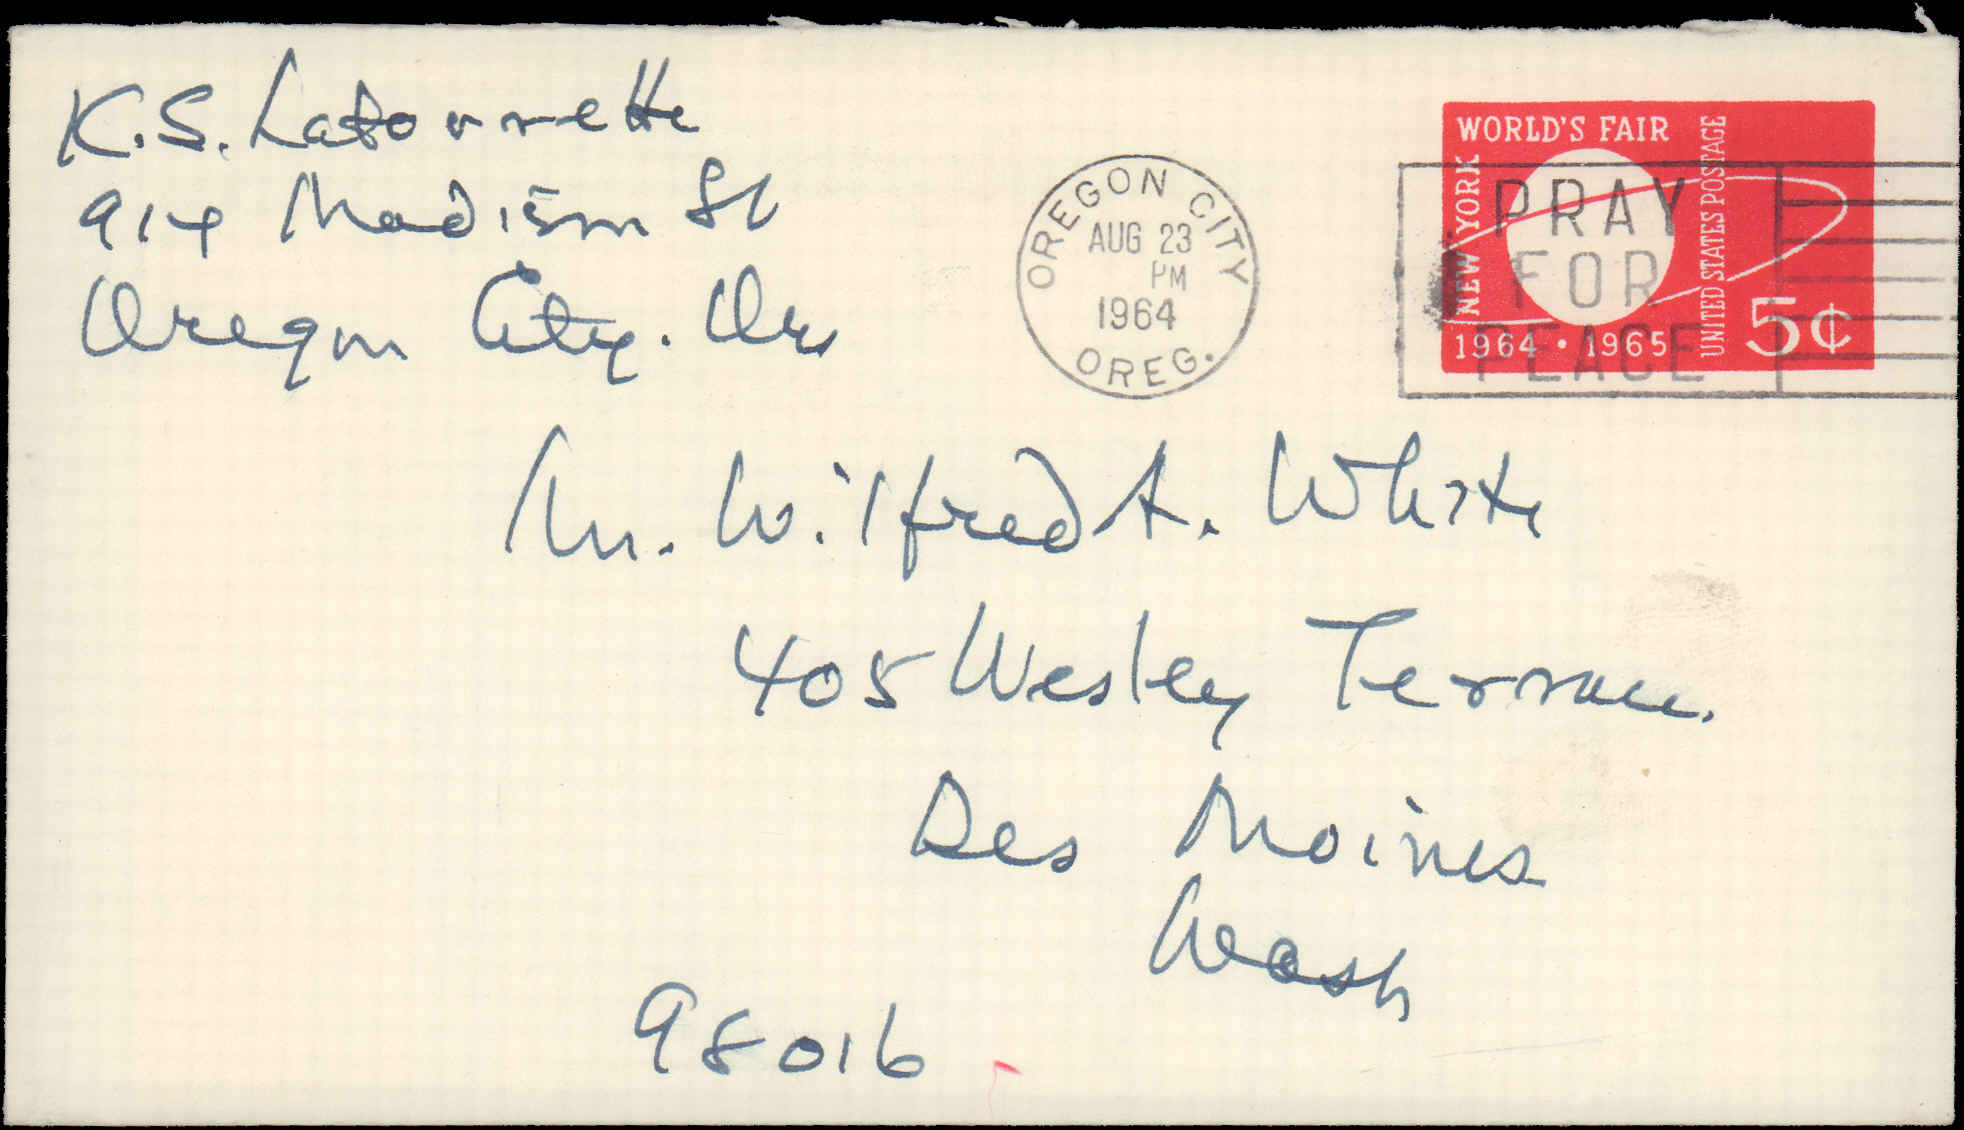 K.S. Latourette
914 Madison St
Oregon City. Ore
OREGON CITY
AUG 23
PM
1964
OREG.
WORLD'S FAIR
NEW YORK
UNITED STATES POSTAGE
1964 • 1965
5¢
PRAY
FOR
PEACE
Mr. Wilfred A. White
405 Wesley Terrace.
Des Moines
Wash
98016